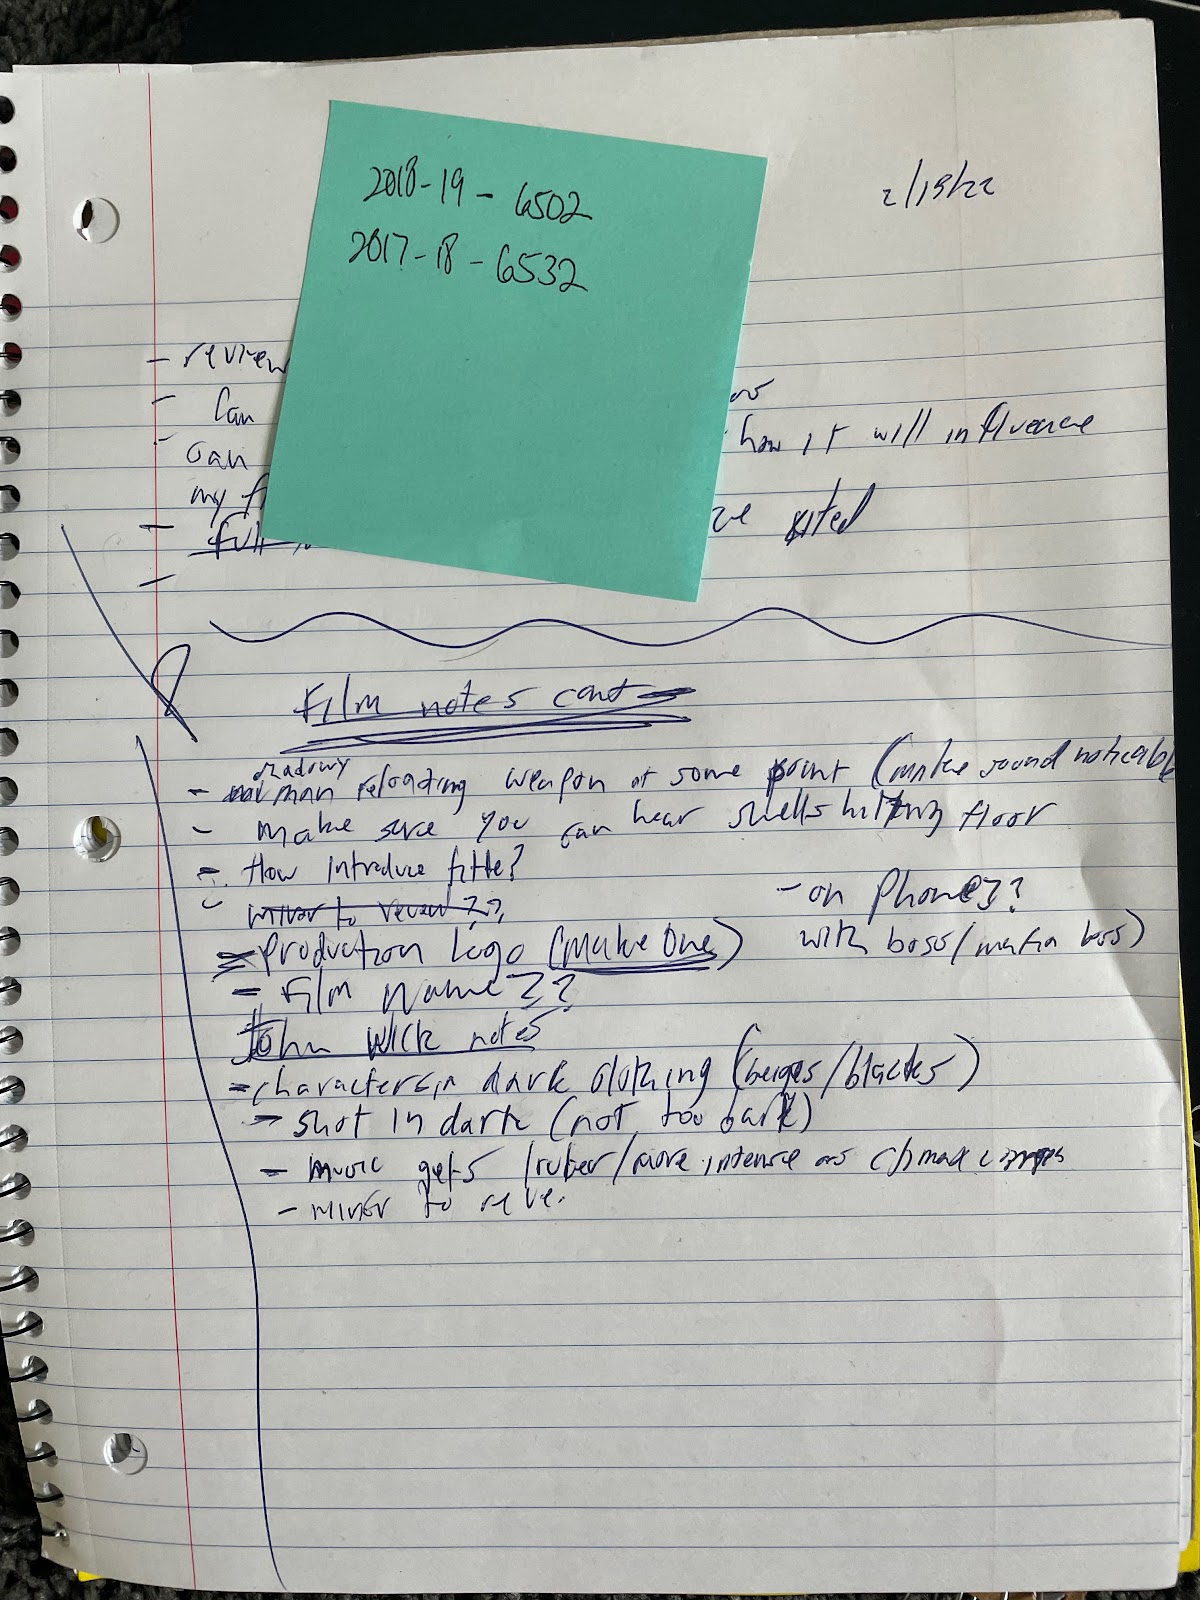 2018-19 - 6502
2017-18 - 6532
2/19/22
- review
- Can
- can how it will influence
my f
- full
-
Film notes cont
shadowy
- man reloading weapon at some point (make sound noticeable
- make sure you can hear shells hitting floor
- How introduce title?
- minor to reveal??
- on Phone??
with boss/mafia boss)
- Production Logo (Make One)
- Film Name??
John Wick notes
- characters in dark clothing (beiges/blacks)
- shot in dark (not too dark)
- music gets /more intense as climax
- minor to